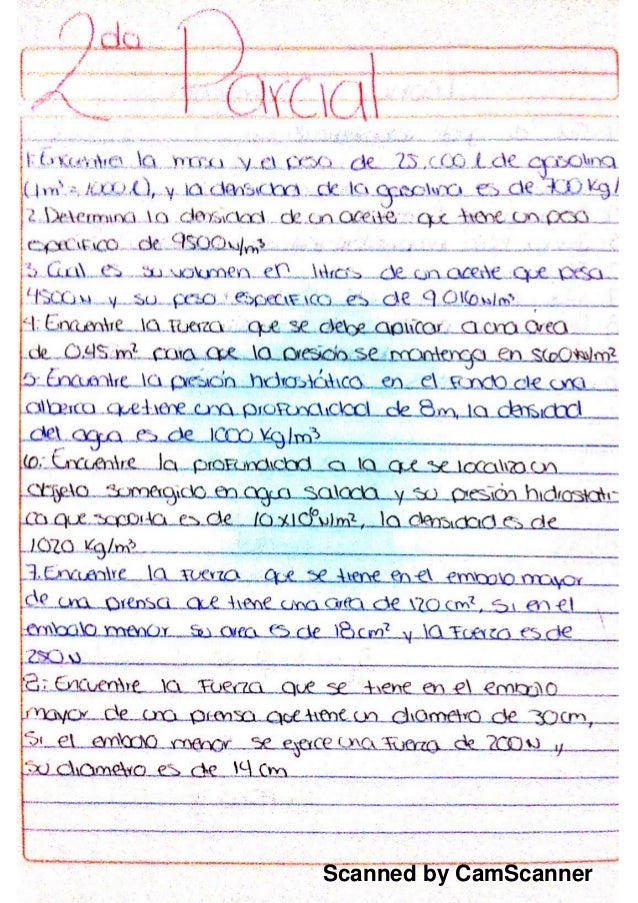 2do Parcial
1: Encuentre la masa y el peso de 25,000 l de gasolina
(1m³ = 1000 l), y la densidad de la gasolina es de 700 Kg/
2. Determina la densidad de un aceite que tiene un peso
especifico de 9500 N/m³
3. Cual es su volumen en litros de un aceite que pesa
4500 N y su peso especifico es de 9016 N/m³
4: Encuentre la fuerza que se debe aplicar a una area
de 0.45 m² para que la presión se mantenga en 5600 N/m²
5: Encuentre la presión hidrostática en el fondo de una
alberca que tiene una profundidad de 8m, la densidad
del agua es de 1000 Kg/m³
6: Encuentre la profundidad a la que se localiza un
objeto sumergido en agua salada y su presión hidrostati-
ca que soporta es de 10x10⁶ N/m², la densidad es de
1020 Kg/m³
7. Encuentre la fuerza que se tiene en el embolo mayor
de una prensa que tiene una área de 120 cm², si en el
embolo menor su area es de 18 cm² y la fuerza es de
250 N
8: Encuentre la fuerza que se tiene en el embolo
mayor de una prensa que tiene un diametro de 30cm,
si el embolo menor se ejerce una fuerza de 200 N y
su diametro es de 14 cm
Scanned by CamScanner